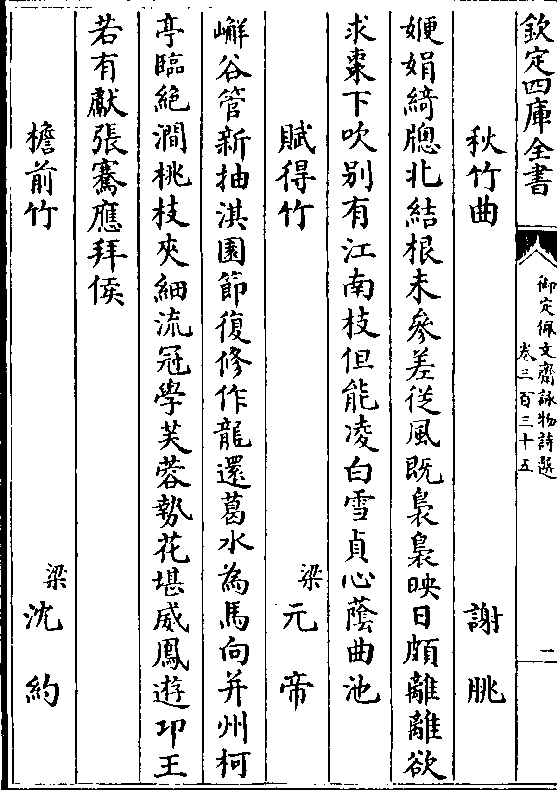 欽定四庫全書
御定佩文齋詠物詩選
卷三百三十五
二
秋竹曲 謝朓
㛹娟綺牕北結根未參差從風既裊裊映日頗離離欲
求棗下吹别有江南枝但能凌白雪貞心蔭曲池
賦得竹 梁元帝
嶰谷管新抽淇園節復修作龍還葛水為馬向并州柯
亭臨絶澗桃枝夾細流冠學芙蓉勢花堪威鳳遊卭王
若有獻張騫應拜侯
檐前竹 梁沈約